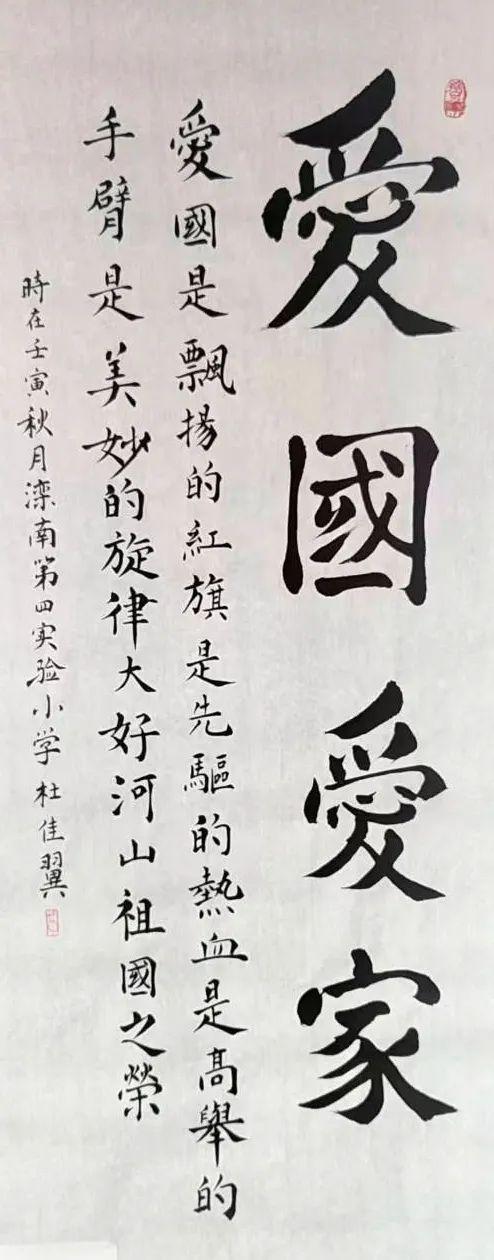 愛國愛家
愛國是飄揚的紅旗是先驅的熱血是高舉的
手臂是美妙的旋律大好河山祖國之榮
時在壬寅秋月滦南第四实验小学杜佳翼